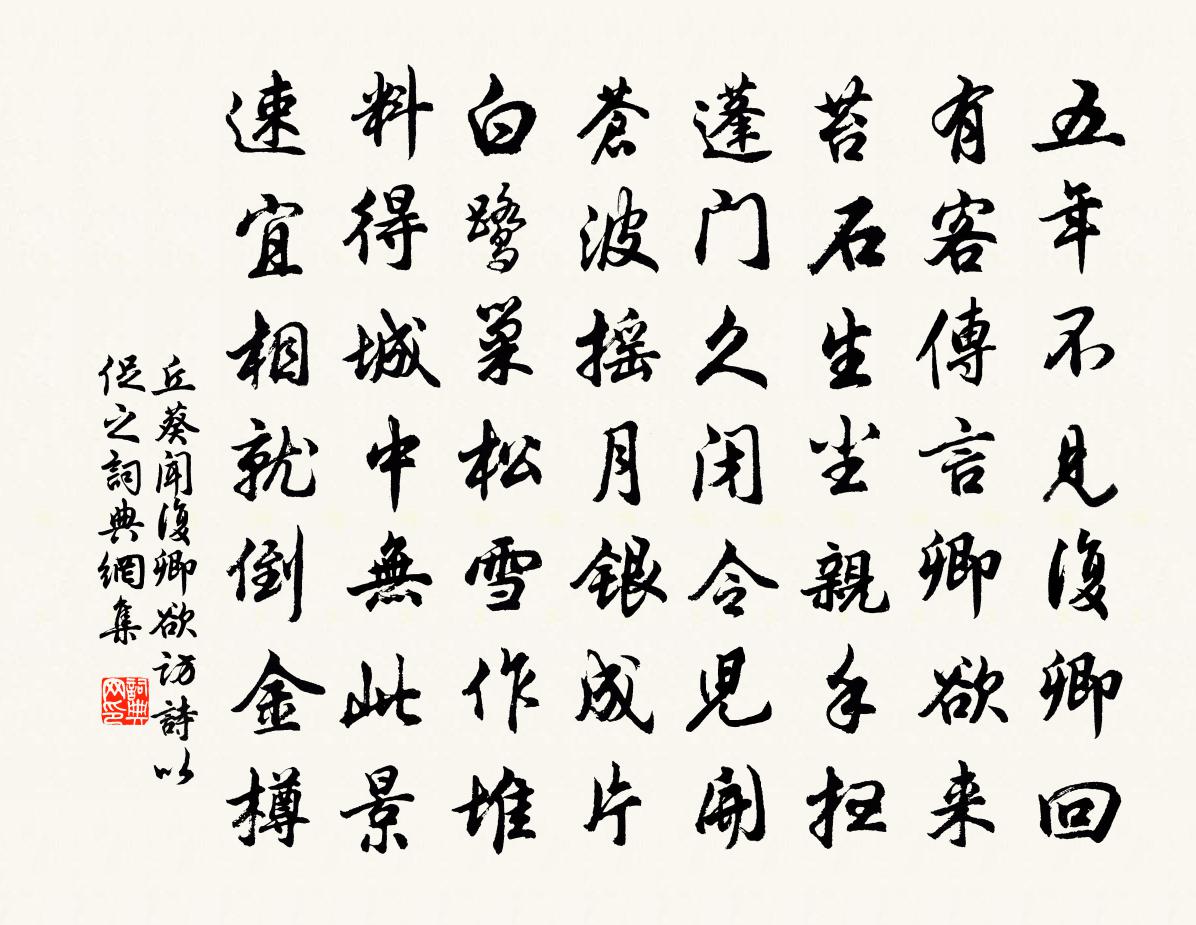 五年不見復卿回
有客傳言卿欲来
苔石生坐親手拄
蓬门久闭令児開
蒼波摇月銀成片
白鹭巢松雪作堆
料得城中無此景
速宜相就倒金樽
丘葵闻復卿欲访詩以
促之詞典網集
詞典
网印